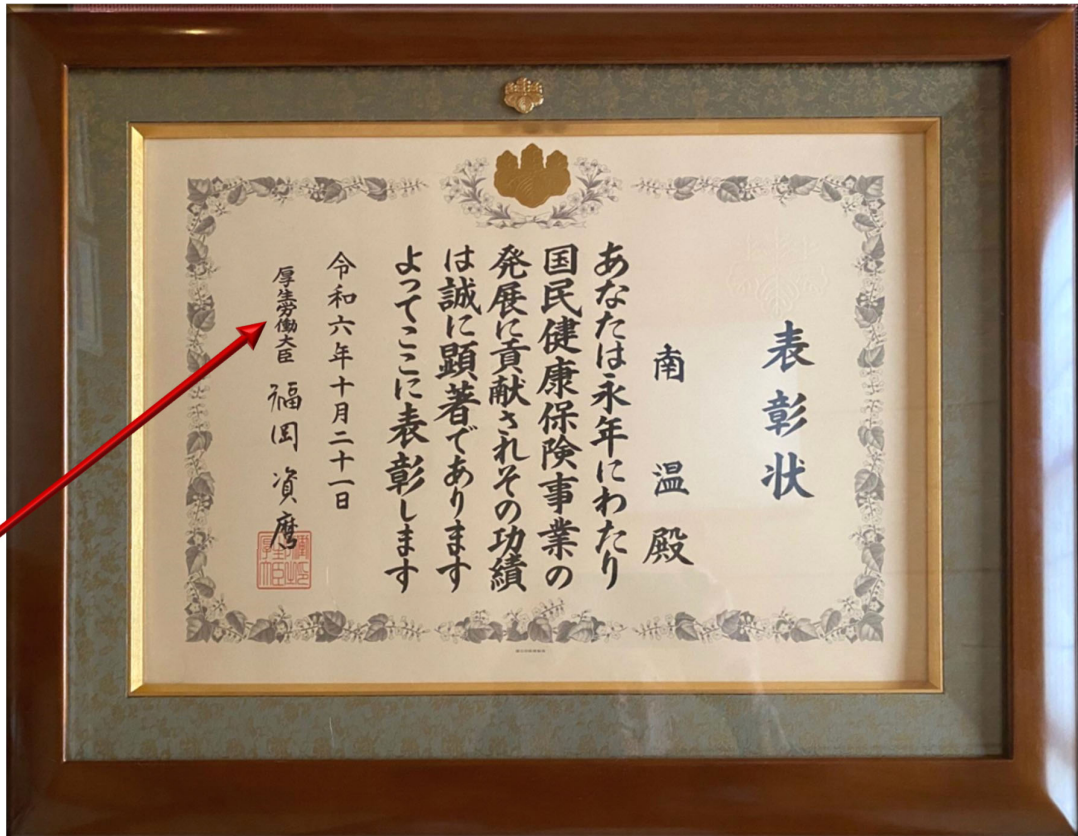 表彰状
南温殿
あなたは永年にわたり
国民健康保険事業の
発展に貢献されその功績
は誠に顕著であります
よってここに表彰します
令和六年十月二十一日
厚生労働大臣 福岡資麿